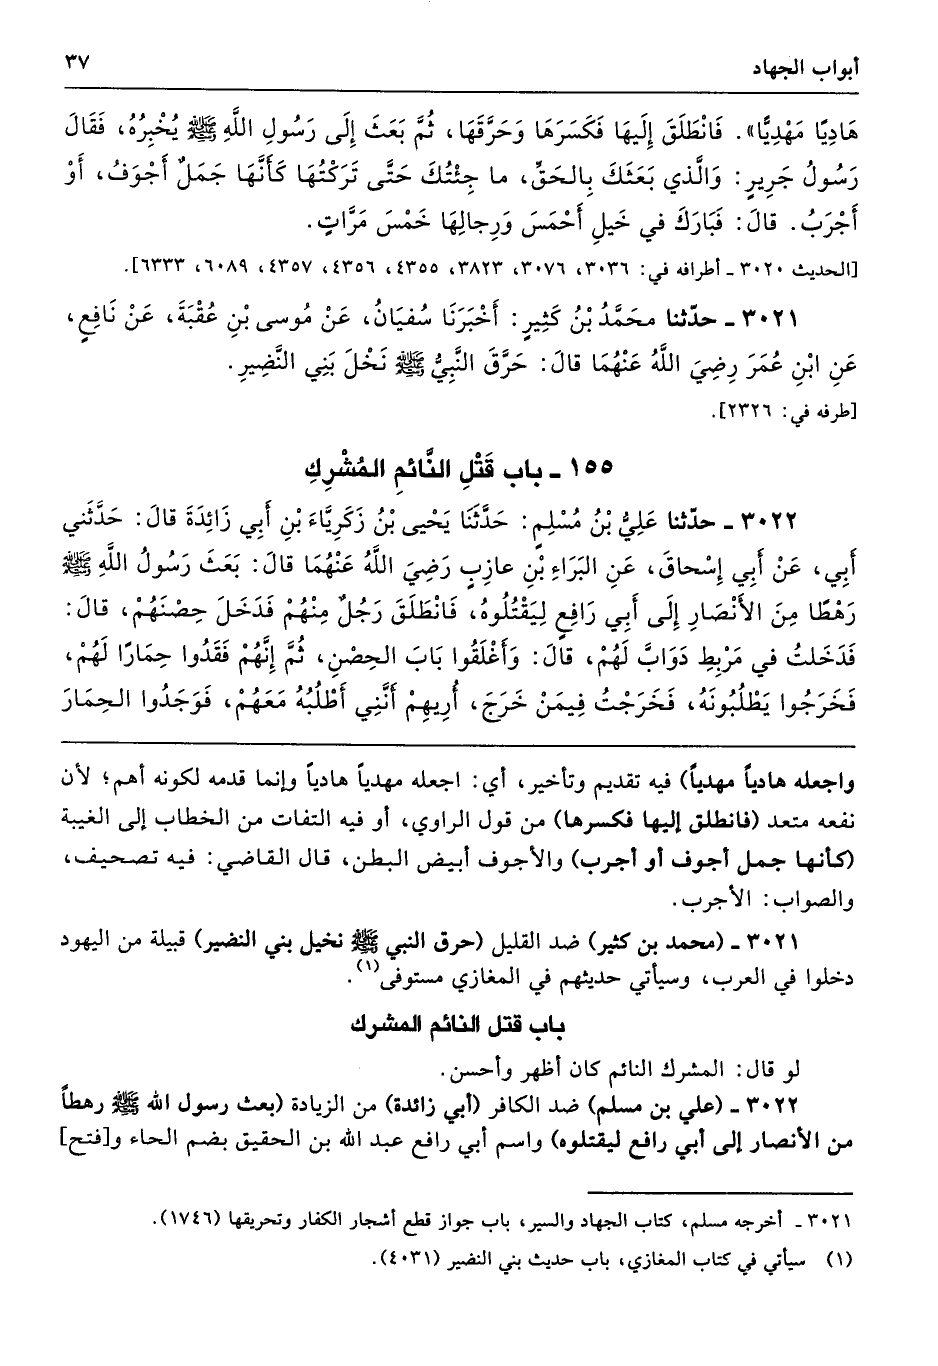 أبواب الجهاد
٣٧
هَادِيًا مَهْدِيًّا». فَانْطَلَقَ إِلَيهَا فَكَسَرَهَا وَحَرَّقَهَا، ثُمَّ بَعَثَ إِلَى رَسُولِ اللَّهِ ﷺ يُخْبِرُهُ، فَقَالَ
رَسُولُ جَرِيرٍ: وَالَّذي بَعَثَكَ بِالحَقِّ، ما جِئْتُكَ حَتَّى تَرَكْتُهَا كَأَنَّهَا جَمَلٌ أَجْوَفُ، أَوْ
أَجْرَبُ. قالَ: فَبَارَكَ في خَيلِ أَحْمَسَ وَرِجالِهَا خَمْسَ مَرَّاتٍ.
[الحديث ٣٠٢٠ ـ أطرافه في: ٣٠٣٦، ٣٠٧٦، ٣٨٢٣، ٤٣٥٥، ٤٣٥٦، ٤٣٥٧، ٦٠٨٩، ٦٣٣٣].
٣٠٢١ ـ حدّثنا محَمَّدُ بْنُ كَثِيرٍ: أَخْبَرَنَا سُفيَانُ، عَنْ مُوسى بْنِ عُقْبَةَ، عَنْ نَافِعٍ،
عَنِ ابْنِ عُمَرَ رضِيَ اللَّهُ عَنْهُمَا قالَ: حَرَّقَ النَّبِيُّ ﷺ نَخْلَ بَنِي النَّضِيرِ.
[طرفه في: ٢٣٢٦].
١٥٥ ـ باب قَتْلِ النَّائمِ المُشْرِكِ
٣٠٢٢ ـ حدّثنا عَلِيُّ بْنُ مُسْلِمٍ: حَدَّثَنَا يَحْيى بْنُ زَكَرِيَّاءَ بْنِ أَبِي زَائِدَةَ قالَ: حَدَّثَني
أَبِي، عَنْ أَبِي إِسْحاقَ، عَنِ البَرَاءِ بْنِ عازِبٍ رَضِيَ اللَّهُ عَنْهُمَا قالَ: بَعَثَ رَسُولُ اللَّهِ ﷺ
رَهْطًا مِنَ الأَنْصَارِ إِلَى أَبِي رَافِعٍ لِيَقْتُلُوهُ، فَانْطَلَقَ رَجُلٌ مِنْهُمْ فَدَخَلَ حِصْنَهُمْ، قالَ:
فَدَخَلتُ في مَرْبِطِ دَوَابَّ لَهُمْ، قالَ: وَأَغْلَقُوا بَابَ الحِصْنِ، ثُمَّ إِنَّهُمْ فَقَدُوا حِمَارًا لَهُمْ،
فَخَرَجُوا يَطْلُبُونَهُ، فَخَرَجْتُ فِيمَنْ خَرَجَ، أُرِيهِمْ أَنَّنِي أَطْلُبُهُ مَعَهُمْ، فَوَجَدُوا الحِمَارَ
واجعله هادياً مهدياً) فيه تقديم وتأخير، أي: اجعله مهدياً هادياً وإنما قدمه لكونه أهم؛ لأن
نفعه متعد (فانطلق إليها فكسرها) من قول الراوي، أو فيه التفات من الخطاب إلى الغيبة
(كأنها جمل أجوف أو أجرب) والأجوف أبيض البطن، قال القاضي: فيه تصحيف،
والصواب: الأجرب.
٣٠٢١ ـ (محمد بن كثير) ضد القليل (حرق النبي ﷺ نخيل بني النضير) قبيلة من اليهود
دخلوا في العرب، وسيأتي حديثهم في المغازي مستوفى(١).
باب قتل النائم المشرك
لو قال: المشرك النائم كان أظهر وأحسن.
٣٠٢٢ ـ (علي بن مسلم) ضد الكافر (أبي زائدة) من الزيادة (بعث رسول الله ﷺ رهطاً
من الأنصار إلى أبي رافع ليقتلوه) واسم أبي رافع عبد الله بن الحقيق بضم الحاء و[فتح]
٣٠٢١ ـ أخرجه مسلم، كتاب الجهاد والسير، باب جواز قطع أشجار الكفار وتحريقها (١٧٤٦).
(١) سيأتي في كتاب المغازي، باب حديث بني النضير (٤٠٣١).